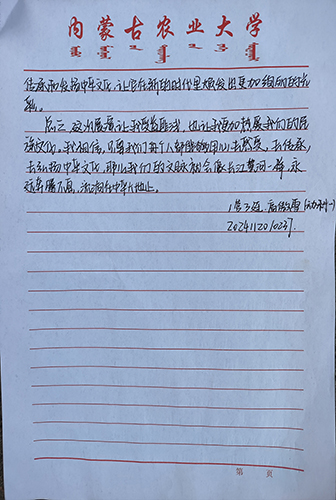 内蒙古农业大学
传承和发扬中华文化,让它在新的时代里焕发出更加绚丽的光彩。
总之,这次展览让我受益匪浅,也让我更加热爱我们的民族文化。我相信,只要我们每个人都能够用心去感受,去传承,去弘扬中华文化,那么我们的文脉就会像长江黄河一样,永远奔腾不息,流淌在中华大地上。
1营3连
2024112010237
第 页